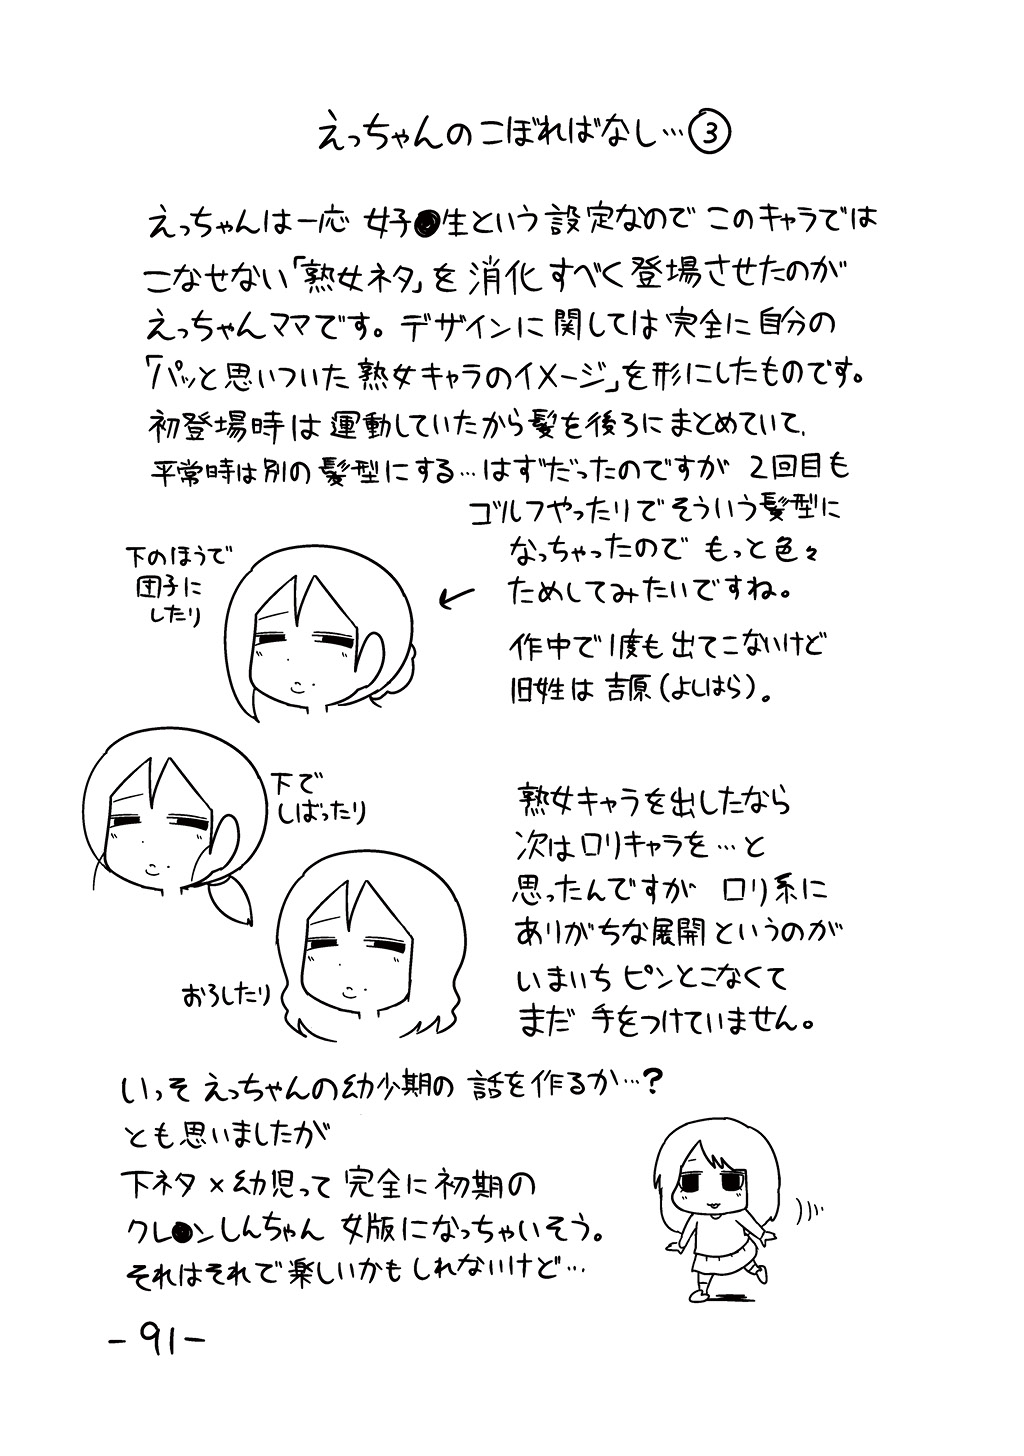 えっちゃんのこぼればなし…③
えっちゃんは一応 女子●生という設定なので このキャラでは
こなせない「熟女ネタ」を 消化すべく登場させたのが
えっちゃんママです。デザインに関しては完全に自分の
「パッと思いついた熟女キャラのイメージ」を形にしたものです。
初登場時は運動していたから髪を後ろにまとめていて、
平常時は別の髪型にする…はずだったのですが 2回目も
ゴルフやったりでそういう髪型に
なっちゃったので もっと色々
ためしてみたいですね。
下のほうで
団子に
したり
作中で1度も出てこないけど
旧姓は吉原(よしはら)。
下で
しばったり
おろしたり
熟女キャラを出したなら
次はロリキャラを…と
思ったんですが ロリ系に
ありがちな展開というのが
いまいちピンとこなくて
まだ 手をつけていません。
いっそ えっちゃんの幼少期の 話を作るか…?
とも思いましたが
下ネタ×幼児って 完全に初期の
クレ●ンしんちゃん 女版になっちゃいそう。
それはそれで楽しいかもしれないけど…
-91-